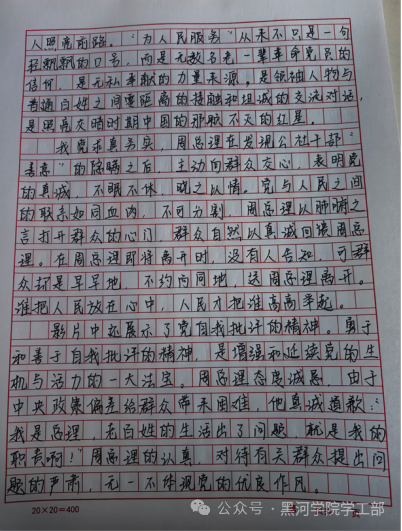 人照亮前路。“为人民服务”从来不只是一句
轻飘飘的口号，而是无数老一辈革命党员的
信仰，是无私奉献的力量来源。是领袖人物与
普通百姓之间零距离的接触和坦诚的交流对话，
是照亮灰暗时期中国的那颗不灭的红星。
我党求真务实，周总理在发现公社干部“
善意”的隐瞒之后，主动向群众交心，表明党
的真诚，不眠不休，晓之以情。党与人民之间
的联系如同血肉，不可分割，周总理以肺腑之
言打开群众的心门，群众自然以真诚回馈周总
理。在周总理即将离开时，没有人告知，可群
众却是早早地，不约而同地，送周总理离开。
谁把人民放在心中，人民才把谁高高举起。
影片中还展示了党自我批评的精神。勇于
和善于自我批评的精神，是增强和延续党的生
机与活力的一大法宝。周总理态度诚恳，由于
中央政策偏差给群众带来困难，他真诚道歉：“
我是总理，老百姓的生活出了问题，就是我的
职责啊！”周总理的认真，对待有关群众提出问
题的严肃，无一不体现党的优良作风。
20×20=400
公众号·黑河学院学工部